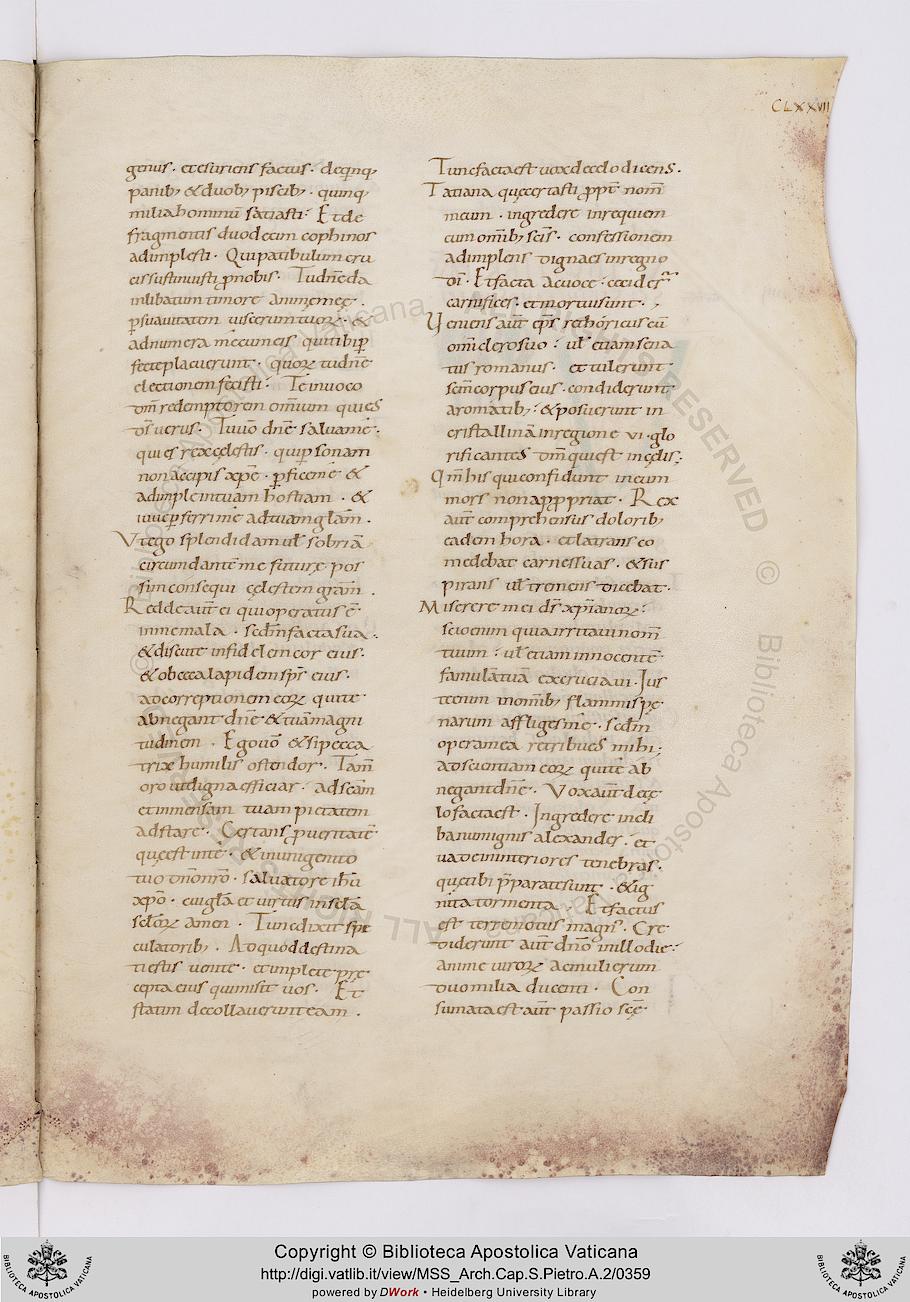 CLXXVII
genus · et esuriens factus · de q̄nq;
panib; & duob; piscib; · quinq;
milia hominū satiasti · Et de
fragmentis duodecim cophinos
adimplesti · Qui patibulum cru
cis sustinuisti ꝓ nobis · Tu dn̄e da
inlibatum timorē animę meę ·
ꝑ suauitatem uiscerum tuoꝝ · &
adnumera me cum eis qui tibi ꝑ
fecte placuerunt · quoꝝ tu dn̄e
electionem fecisti · Te inuoco
dm̄ redemptorem omnium qui es
ds̄ uerus · Tu uō dn̄e salua me ·
qui es rex cęlestis · qui ꝑsonam
non accipis xp̄e · ꝑfice me &
adimple in tuam hostiam · &
iube ꝑferri me ad tuam glām ·
Ut ego splendidam uł sobriā
circumdantē me futurę pos
sim consequi cęlestem grām ·
Redde aut̄ ei qui operatus ē
in me mala · scdm̄ facta sua ·
& discute infidelem cor eius ·
& obceca lapidem sp̄s eius ·
ad correptionem eoꝝ qui te
abnegant dn̄e & tuā magni
tudinem · Ego uō & si pecca
trix humilis ostendor · Tam̄
oro ut digna efficiar · ad scām
et inmensam tuam pietatem
adstare · Certans ꝓ ueritate
quę est in te · & in unigenito
tuo dn̄o nr̄o · saluatore ih̄u
xp̄o · cui glā et uirtus in sclā
sclōꝝ amen · Tunc dixit spe
culatorib; · Ad quod destina
ti estis uenite · et implete prę
cepta eius qui misit uos · Et
statim decollauerunt eam ·
Tunc facta est uox de cęlo dicens ·
Tatiana quę certasti ꝓpt̄ nom̄
meum · ingredere in requiem
cum omnib; scīs · confessionem
adimplens digna es in regno
dī · Et facta a uoce · cecider̄
carnifices · et mortui sunt ·
Veniens aut̄ ep̄s rethoricus cū
omī clero suo · uł etiam sena
tus romanus · et tulerunt
scm̄ corpus eius · condiderunt
aromatib; · & posuerunt in
cristallina in regione VI · glo
rificantes dm̄ qui est in cęlis ;
Qm̄ his qui confidunt in eum
mors non appropriat · Rex
aut̄ comprehensus dolorib;
eadem hora · et latrans co
medebat carnes suas · & sus
pirans uł tremens dicebat ·
Miserere mei ds̄ xp̄ianoꝝ ·
scio enim quia irritaui nom̄
tuum · uł etiam innocentē
famulā tuā excruciaui · Ius
te enim in omnib; flammis pę
narum affliges me · scdm̄
opera mea retribues mihi ;
ad scientiam eoꝝ qui te ab
negant dn̄e · Vox aut̄ de cę
lo facta est · Ingredere incli
banum ignis alexander · et
uade in interiores tenebras ·
quę tibi p̄paratę sunt · & ig
nita tormenta · Et factus
est terremotus magn̄s · Cre
diderunt aut̄ dn̄o in illo die ·
animę uiroꝝ ac mulierum
duo milia ducenti · Con
sumata est aut̄ passio scę̄
Copyright © Biblioteca Apostolica Vaticana
http://digi.vatlib.it/view/MSS_Arch.Cap.S.Pietro.A.2/0359
powered by DWork • Heidelberg University Library